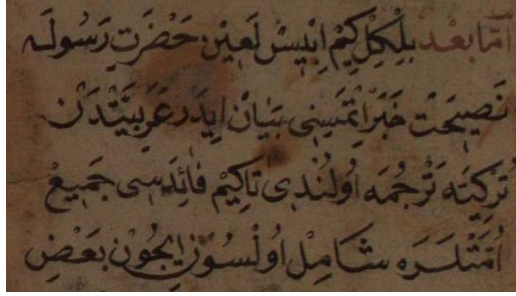 اَمَّا بَعْد بِلْكِلْ كِيمْ اِبْلِيسْ لَعِينْ حَضْرَتِ رَسُولَه
نَصِيحَتْ خَبَرْ اِتْمَسِنِى بَيَانْ اِيدَرْ عَرَبِيَّتْدَنْ
تُرْكِيَه تَرْجُمَه اُولُنْدِى تَاكِيمْ فَائِدَسِى جَمِيعْ
اُمَّتْلَرَه شَامِلْ اُولْسُونْ اِيچُونْ بَعْضِ